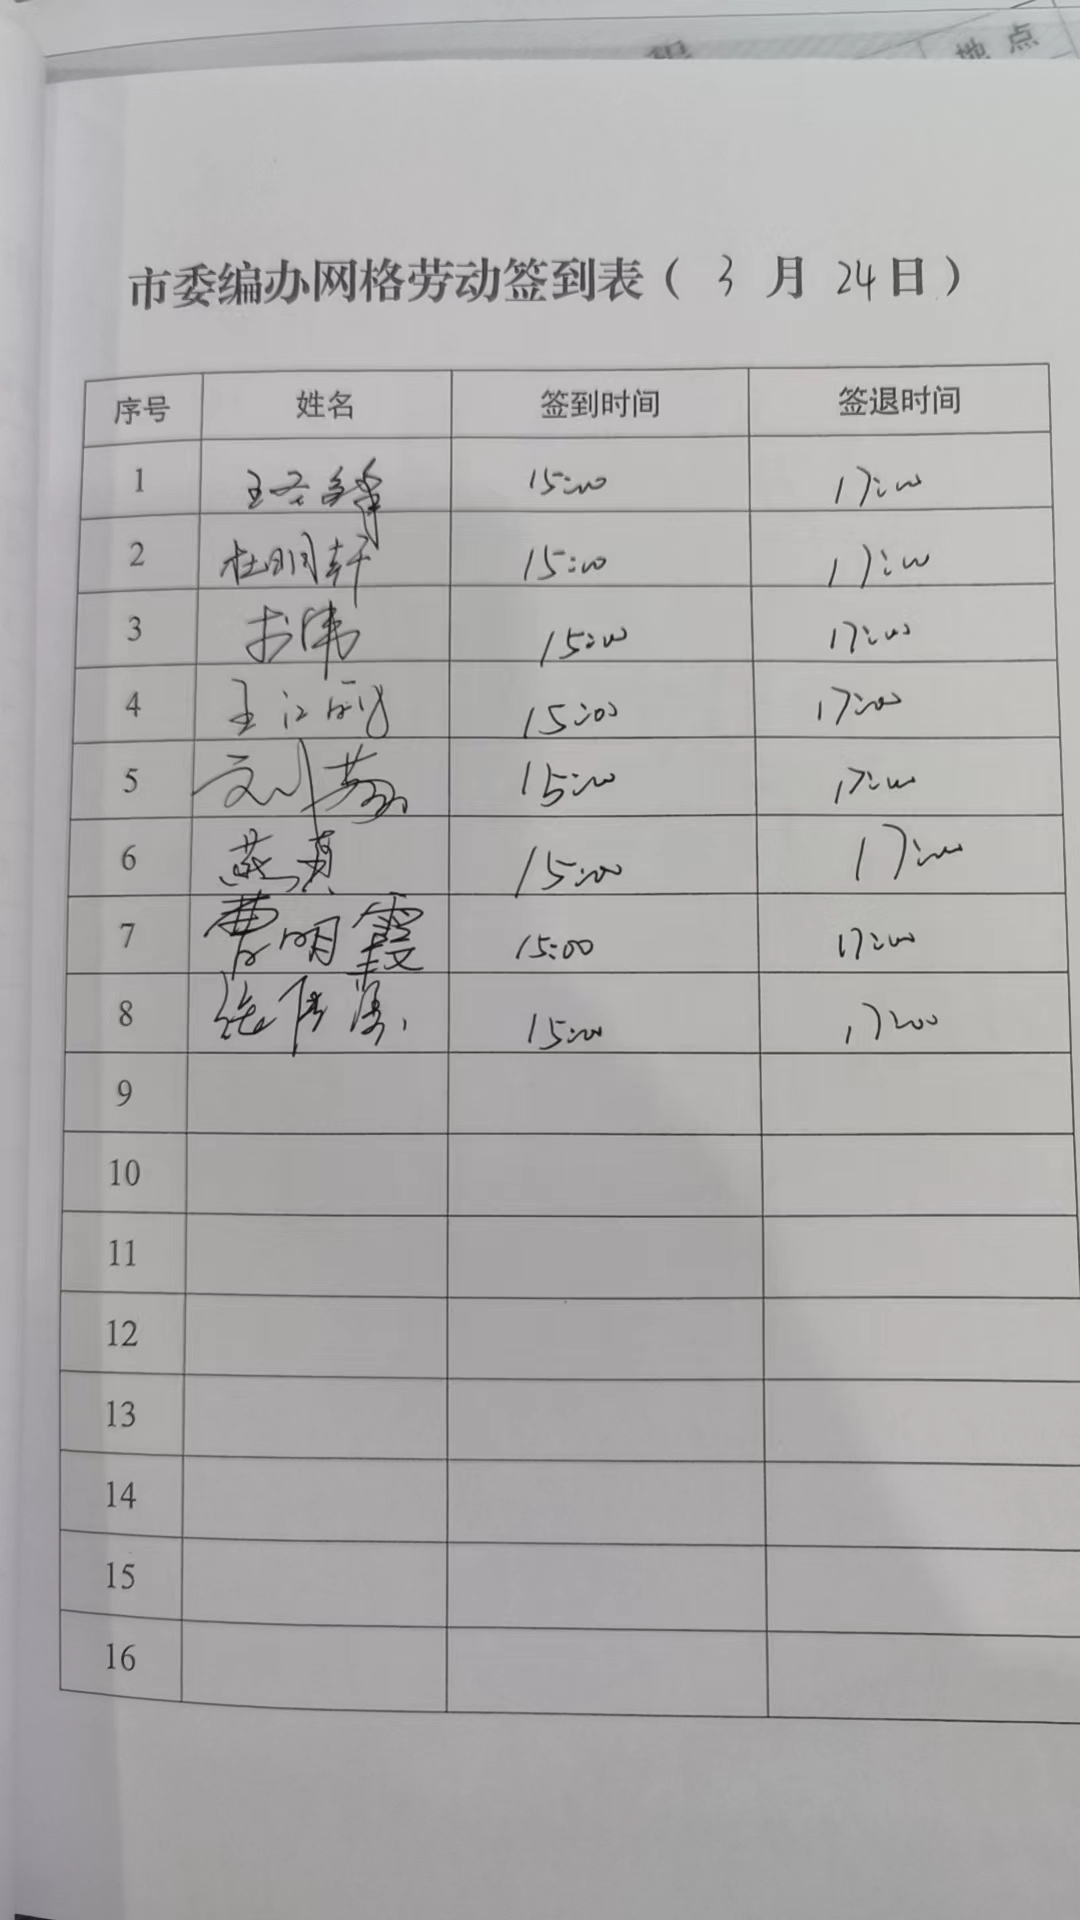 地 点
市委编办网格劳动签到表（3月24日）
序号 姓名 签到时间 签退时间
1 15:00 17:00
2 杜明轩 15:00 17:00
3 15:00 17:00
4 王江 15:00 17:00
5 刘 15:00 17:00
6 燕真 15:00 17:00
7 曹明霞 15:00 17:00
8 15:00 17:00
9
10
11
12
13
14
15
16